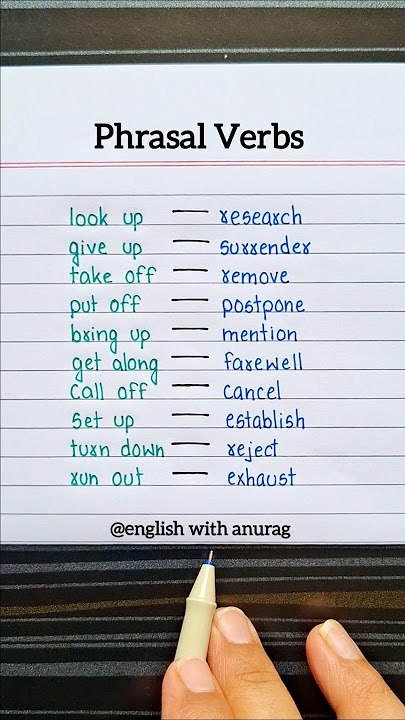 Phrasal Verbs
look up — research
give up — surrender
take off — remove
put off — postpone
bring up — mention
get along — farewell
Call off — cancel
Set up — establish
turn down — reject
run out — exhaust
@english with anurag